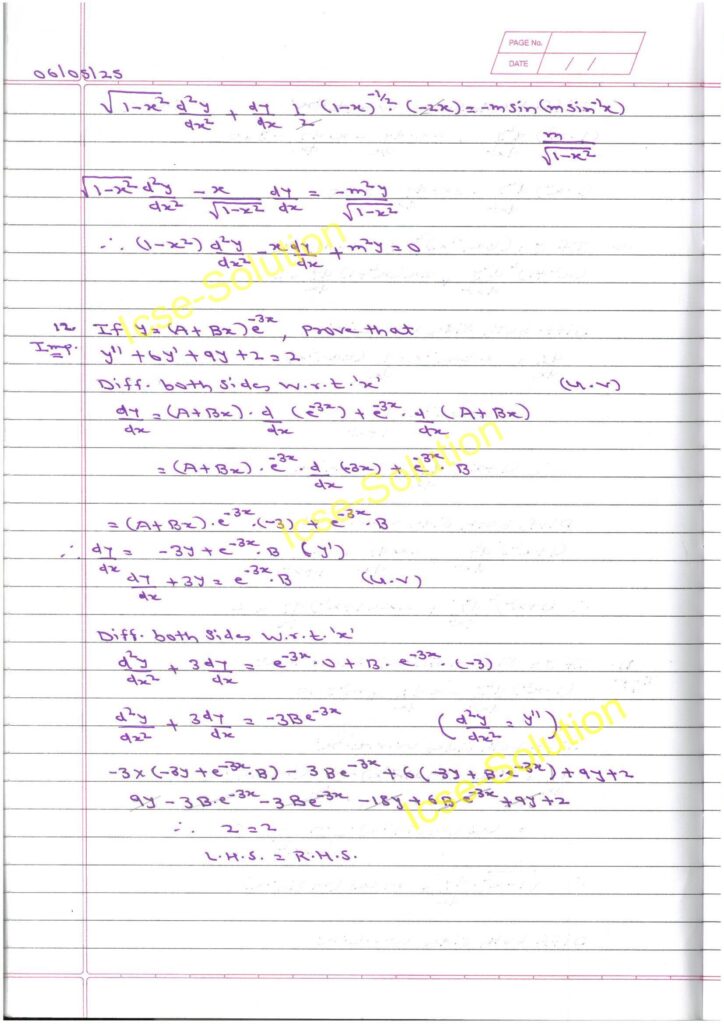 PAGE No.
DATE / /
06/05/25
√1-x² d²y/dx² + dy/dx 1/2 (1-x)^-1/2 · (-2x) = -m sin(m sin⁻¹x) m/√1-x²
√1-x² d²y/dx² - x/√1-x² dy/dx = -m²y/√1-x²
∴ (1-x²) d²y/dx² - x dy/dx + m²y = 0
12 If y = (A + Bx) e^-3x, Prove that
Imp. y'' + 6y' + 9y + 2 = 2
Diff. both sides w.r.t. 'x' (u.v)
dy/dx = (A+Bx) · d/dx (e^-3x) + e^-3x · d/dx (A + Bx)
= (A + Bx) · e^-3x · d/dx (-3x) + e^-3x · B
= (A+Bx) · e^-3x · (-3) + e^-3x · B
∴ dy/dx = -3y + e^-3x · B (y')
dy/dx + 3y = e^-3x · B (u.v)
Diff. both sides w.r.t. 'x'
d²y/dx² + 3dy/dx = e^-3x · 0 + B · e^-3x · (-3)
d²y/dx² + 3dy/dx = -3Be^-3x (d²y/dx² = y'')
-3x(-3y + e^-3x · B) - 3Be^-3x + 6(-3y + B·e^-3x) + 9y + 2
9y - 3B·e^-3x - 3Be^-3x - 18y + 6Be^-3x + 9y + 2
∴ 2 = 2
L.H.S. = R.H.S.
Icse-Solution
Icse-Solution
Icse-Solution